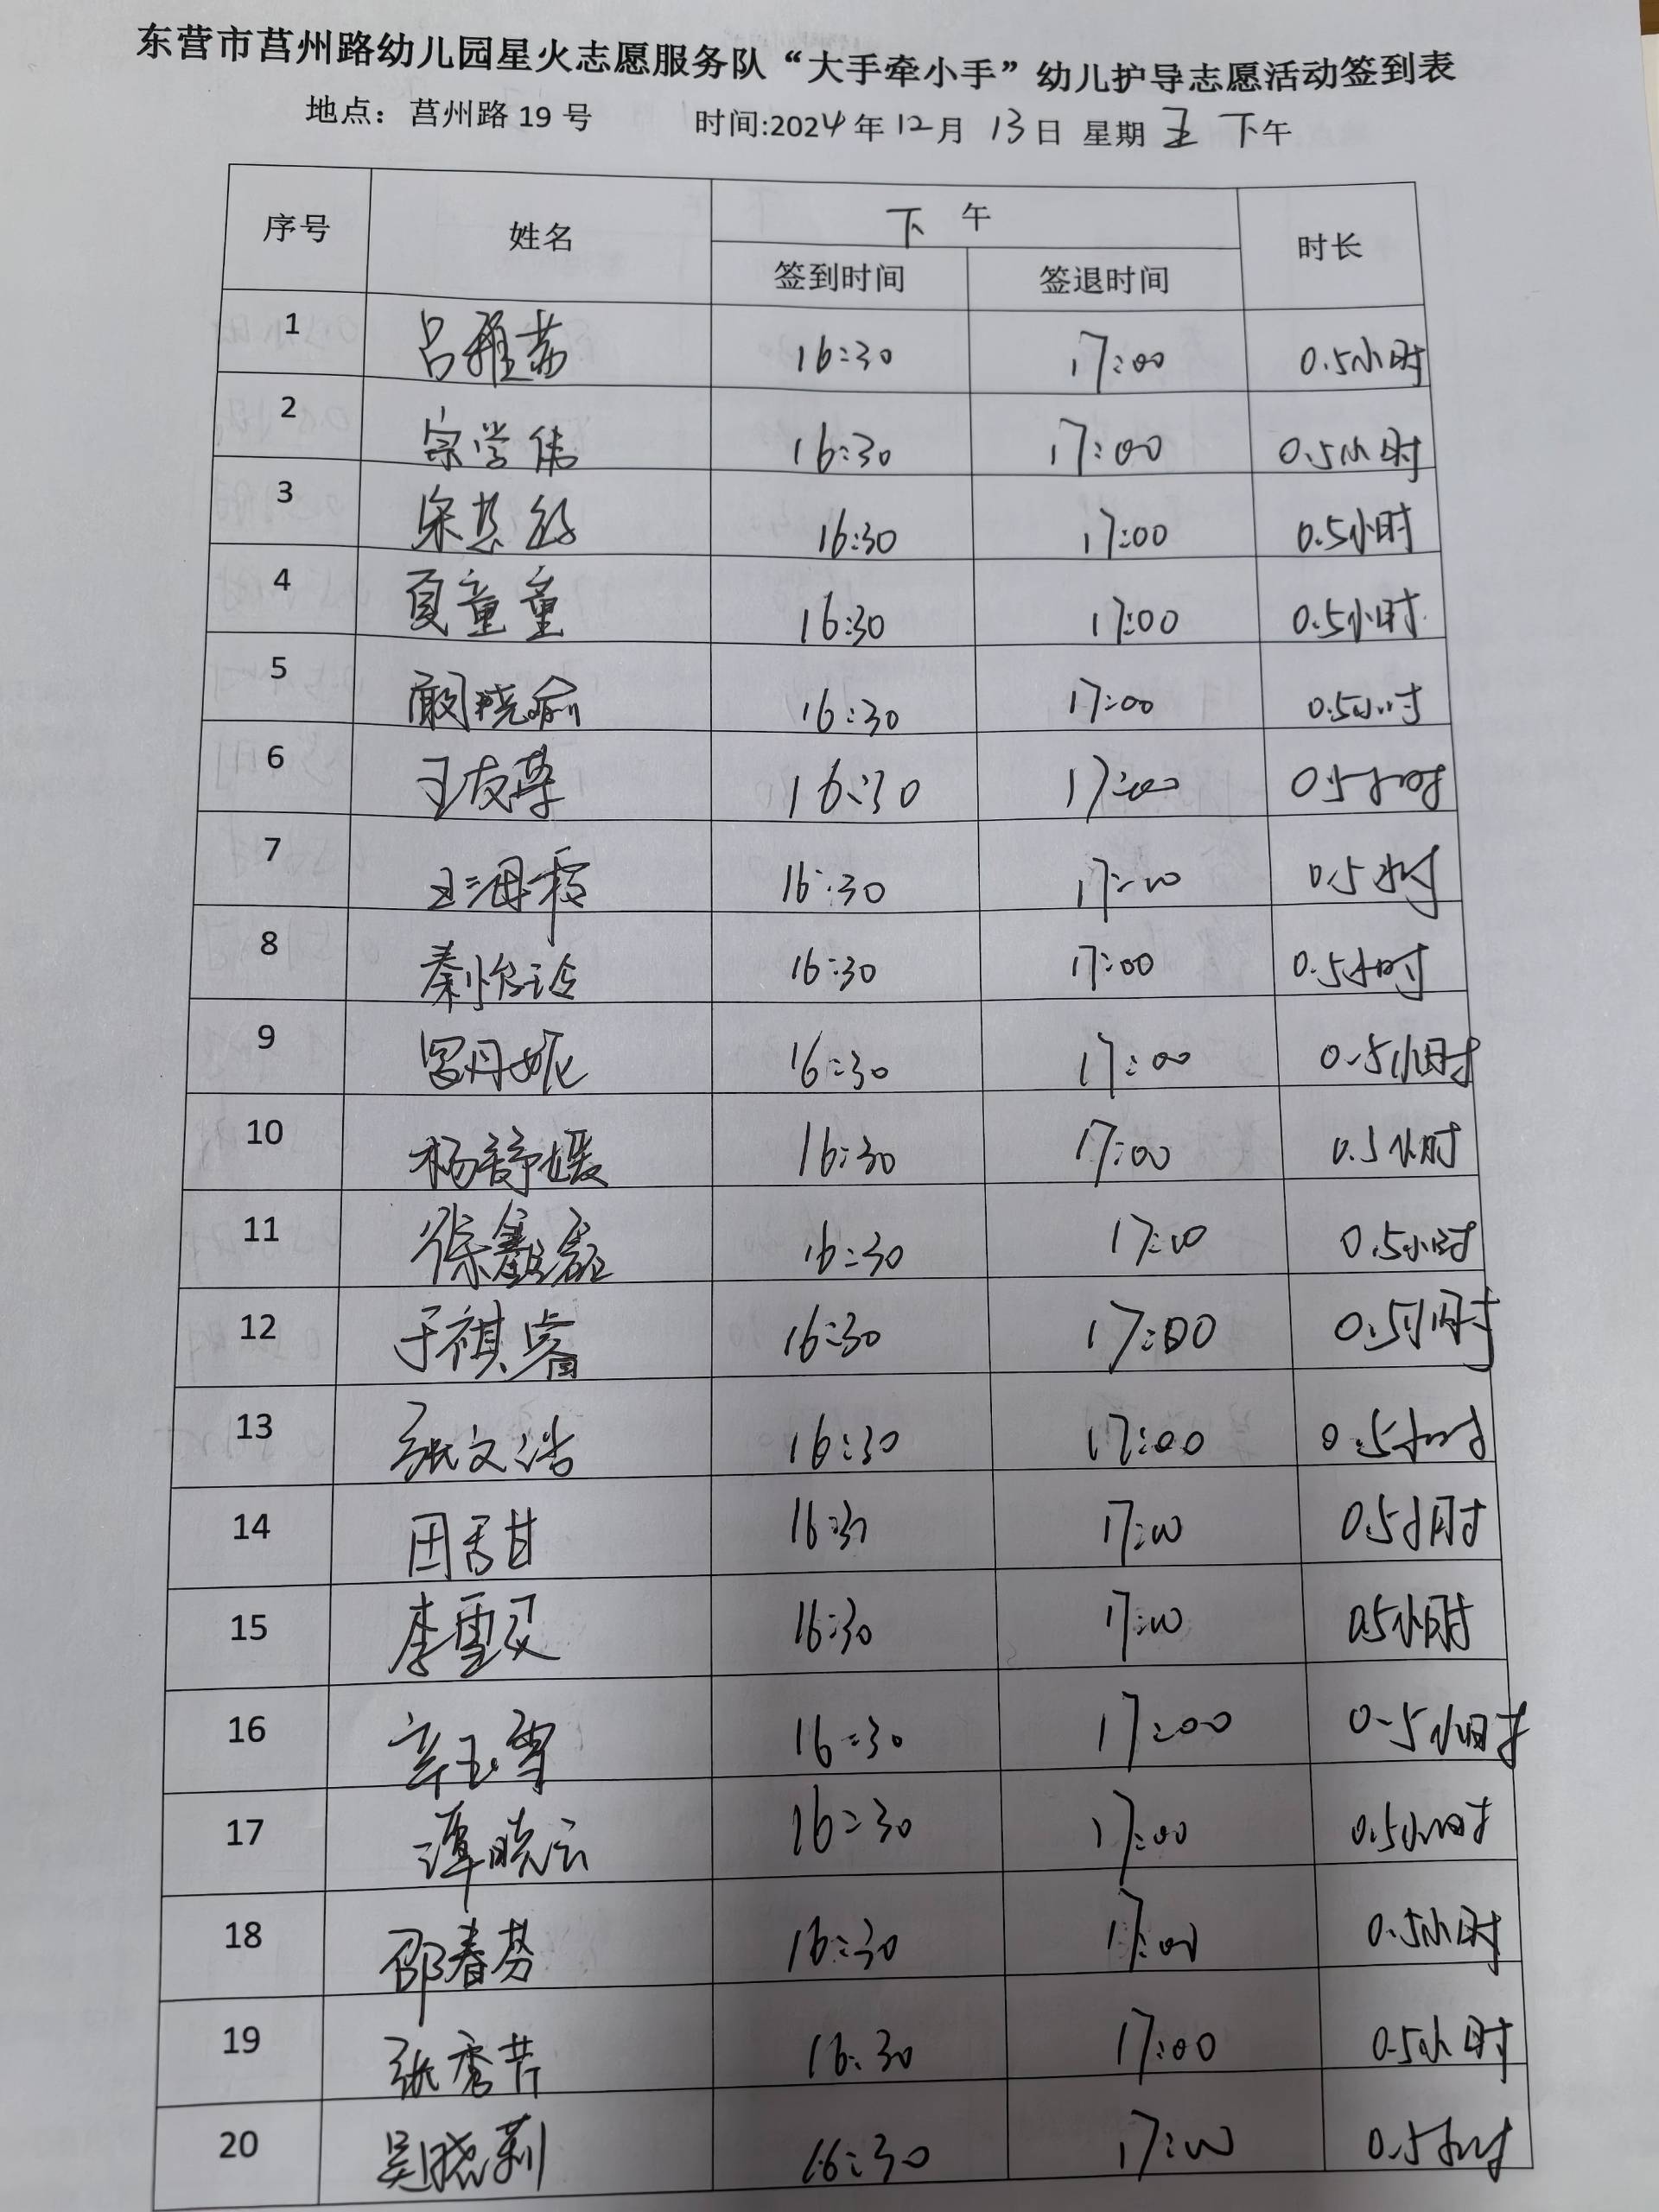 东营市莒州路幼儿园星火志愿服务队“大手牵小手”幼儿护导志愿活动签到表
地点：莒州路 19 号 时间:2024年12月13日 星期五 下午
序号 姓名 下午 时长
签到时间 签退时间
1 吕雅茹 16:30 17:00 0.5小时
2 宗学伟 16:30 17:00 0.5小时
3 宋慧 16:30 17:00 0.5小时
4 夏童童 16:30 17:00 0.5小时
5 阚晓俞 16:30 17:00 0.5小时
6 王友荣 16:30 17:00 0.5小时
7 王海霞 16:30 17:00 0.5小时
8 秦怡玲 16:30 17:00 0.5小时
9 丹妮 16:30 17:00 0.5小时
10 杨舒媛 16:30 17:00 0.5小时
11 徐鑫磊 16:30 17:00 0.5小时
12 于祺睿 16:30 17:00 0.5小时
13 张文浩 16:30 17:00 0.5小时
14 田甜 16:30 17:00 0.5小时
15 李雪 16:30 17:00 0.5小时
16 辛玉雪 16:30 17:00 0.5小时
17 谭晓云 16:30 17:00 0.5小时
18 邵春芳 16:30 17:00 0.5小时
19 张秀芹 16:30 17:00 0.5小时
20 吴晓莉 16:30 17:00 0.5小时